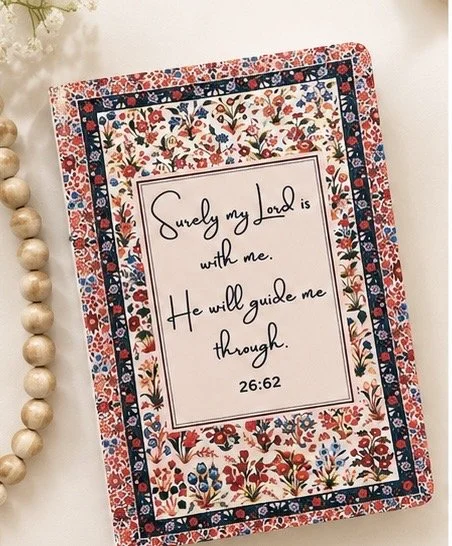 Surely my Lord is
with me.
He will guide me
through.
26:62